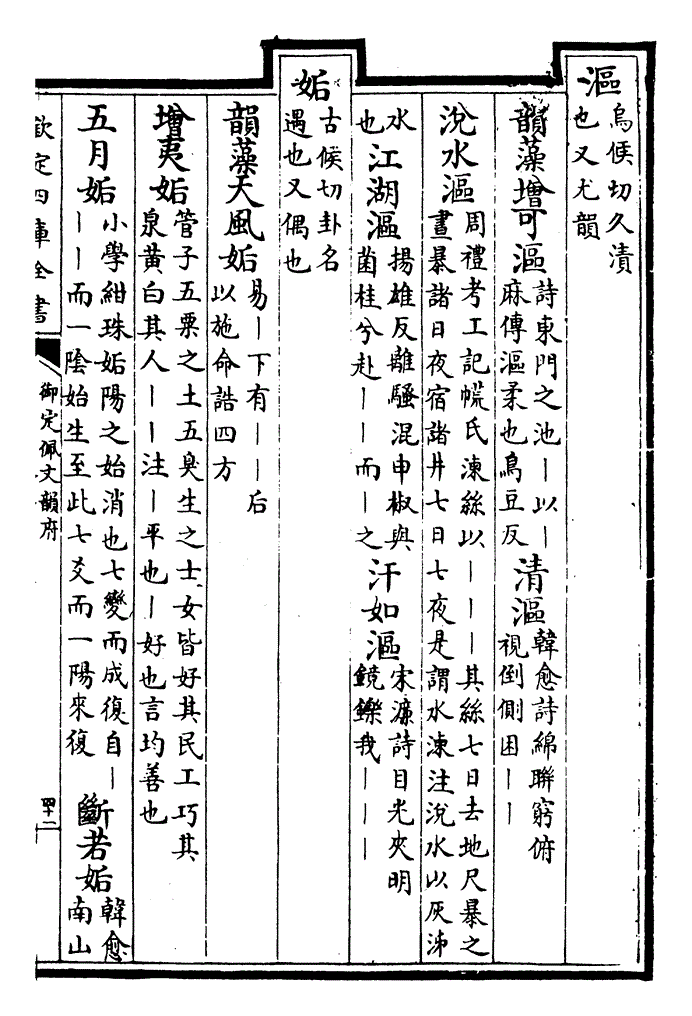 漚
烏候切久漬
也又尤韻
韻藻增可漚詩東門之池丨以丨
麻傳漚柔也烏豆反
清漚韓愈詩綿聯窮俯
視倒側困丨丨
涗水漚周禮考工記㡛氏湅絲以丨丨丨其絲七日去地尺暴之
晝暴諸日夜宿諸井七日七夜是謂水湅注涗水以灰沸
水
也
江湖漚揚雄反離騷混申椒與
菌桂兮赴丨丨而丨之
汗如漚宋濂詩目光夾明
鏡鑠我丨丨丨
姤
古候切卦名
遇也又偶也
韻藻天風姤易丨下有丨丨后
以施命誥四方
增夷姤管子五粟之土五臭生之士女皆好其民工巧其
泉黃白其人丨丨注丨平也丨好也言均善也
五月姤小學紺珠姤陽之始消也七變而成復自丨
丨丨而一陰始生至此七爻而一陽來復
斷若姤韓愈
南山
欽定四庫全書
御定佩文韻府
四十二